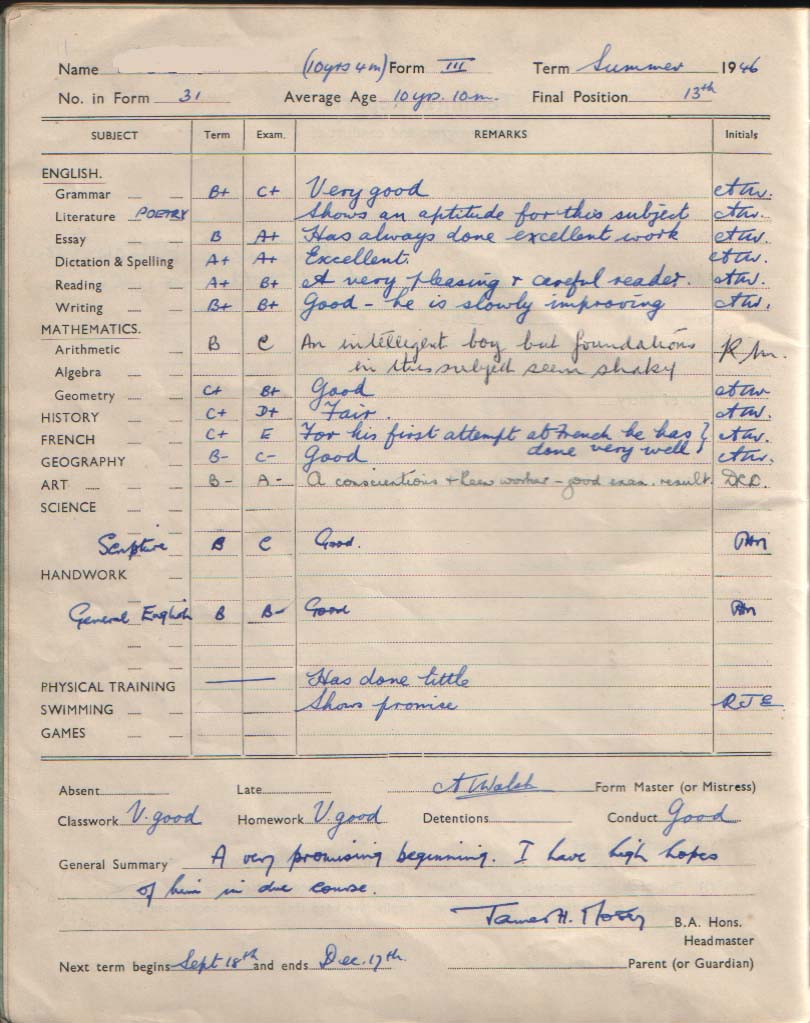 Name (10yrs 4m) Form III Term Summer 1946
No. in Form 31 Average Age 10 yrs. 10m. Final Position 13th
SUBJECT Term Exam. REMARKS Initials
ENGLISH.
Grammar B+ C+ Very good A.W.
Literature POETRY Shows an aptitude for this subject A.W.
Essay B A+ Has always done excellent work A.W.
Dictation & Spelling A+ A+ Excellent. A.W.
Reading A+ B+ A very pleasing & careful reader. A.W.
Writing B+ B+ Good - he is slowly improving A.W.
MATHEMATICS.
Arithmetic B C An intelligent boy but foundations R.M.
Algebra in this subject seem shaky
Geometry C+ B+ Good A.W.
HISTORY C+ D+ Fair. A.W.
FRENCH C+ E For his first attempt at French he has A.W.
done very well
GEOGRAPHY B- C- Good A.W.
ART B- A- A conscientious & keen worker - good exam. result.
SCIENCE
Scripture B C Good.
HANDWORK
General English B B- Good
PHYSICAL TRAINING Has done little
SWIMMING Shows promise R.J.E.
GAMES
Absent Late A Walsh Form Master (or Mistress)
Classwork V. good Homework V. good Detentions Conduct Good
General Summary A very promising beginning. I have high hopes
of him in due course.
James H. B.A. Hons.
Headmaster
Next term begins Sept 18th and ends Dec. 17th. Parent (or Guardian)